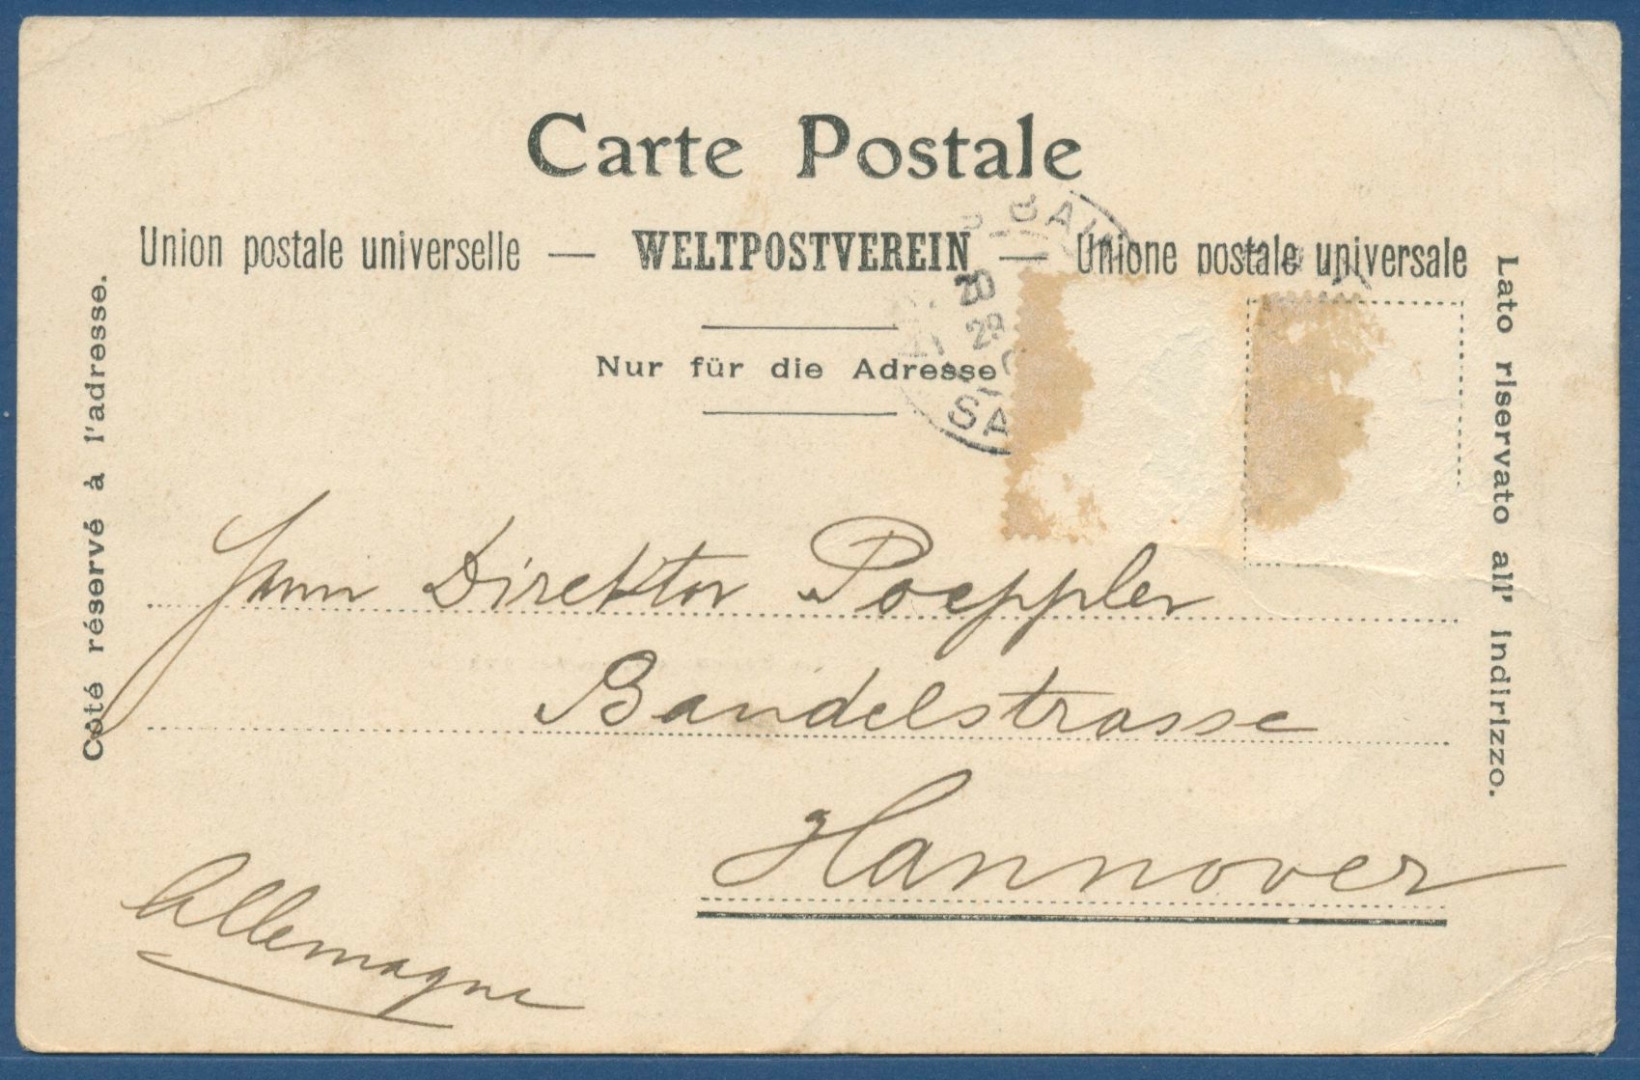 Carte Postale
Union postale universelle — WELTPOSTVEREIN — Unione postale universale
Nur für die Adresse
Côté réservé à l'adresse.
Lato riservato all' Indirizzo.
20
29
SA
Herrn Direktor Poeppler
Bandelstrasse
Hannover
Allemagne